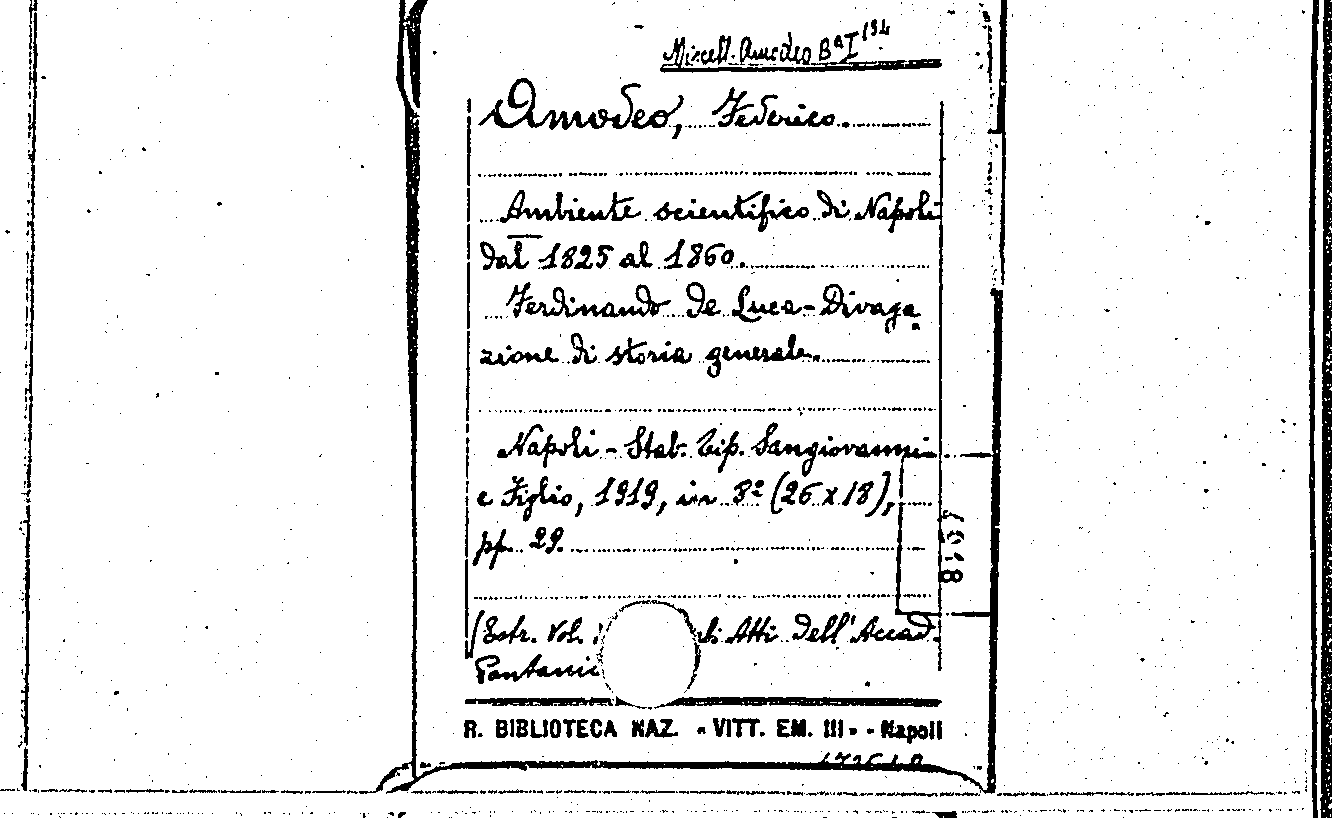 Miscell. Amodeo Bª I 134
Amodeo, Federico.
Ambiente scientifico di Napoli
dal 1825 al 1860.
Ferdinando de Luca - Divaga
zione di storia generale.
Napoli - Stab. Tip. Sangiovanni
e Figlio, 1919, in 8º (26 x 18),
pp. 29.
8107
(Estr. Vol. Atti dell'Accad.
R. BIBLIOTECA NAZ. « VITT. EM. III » - Napoli